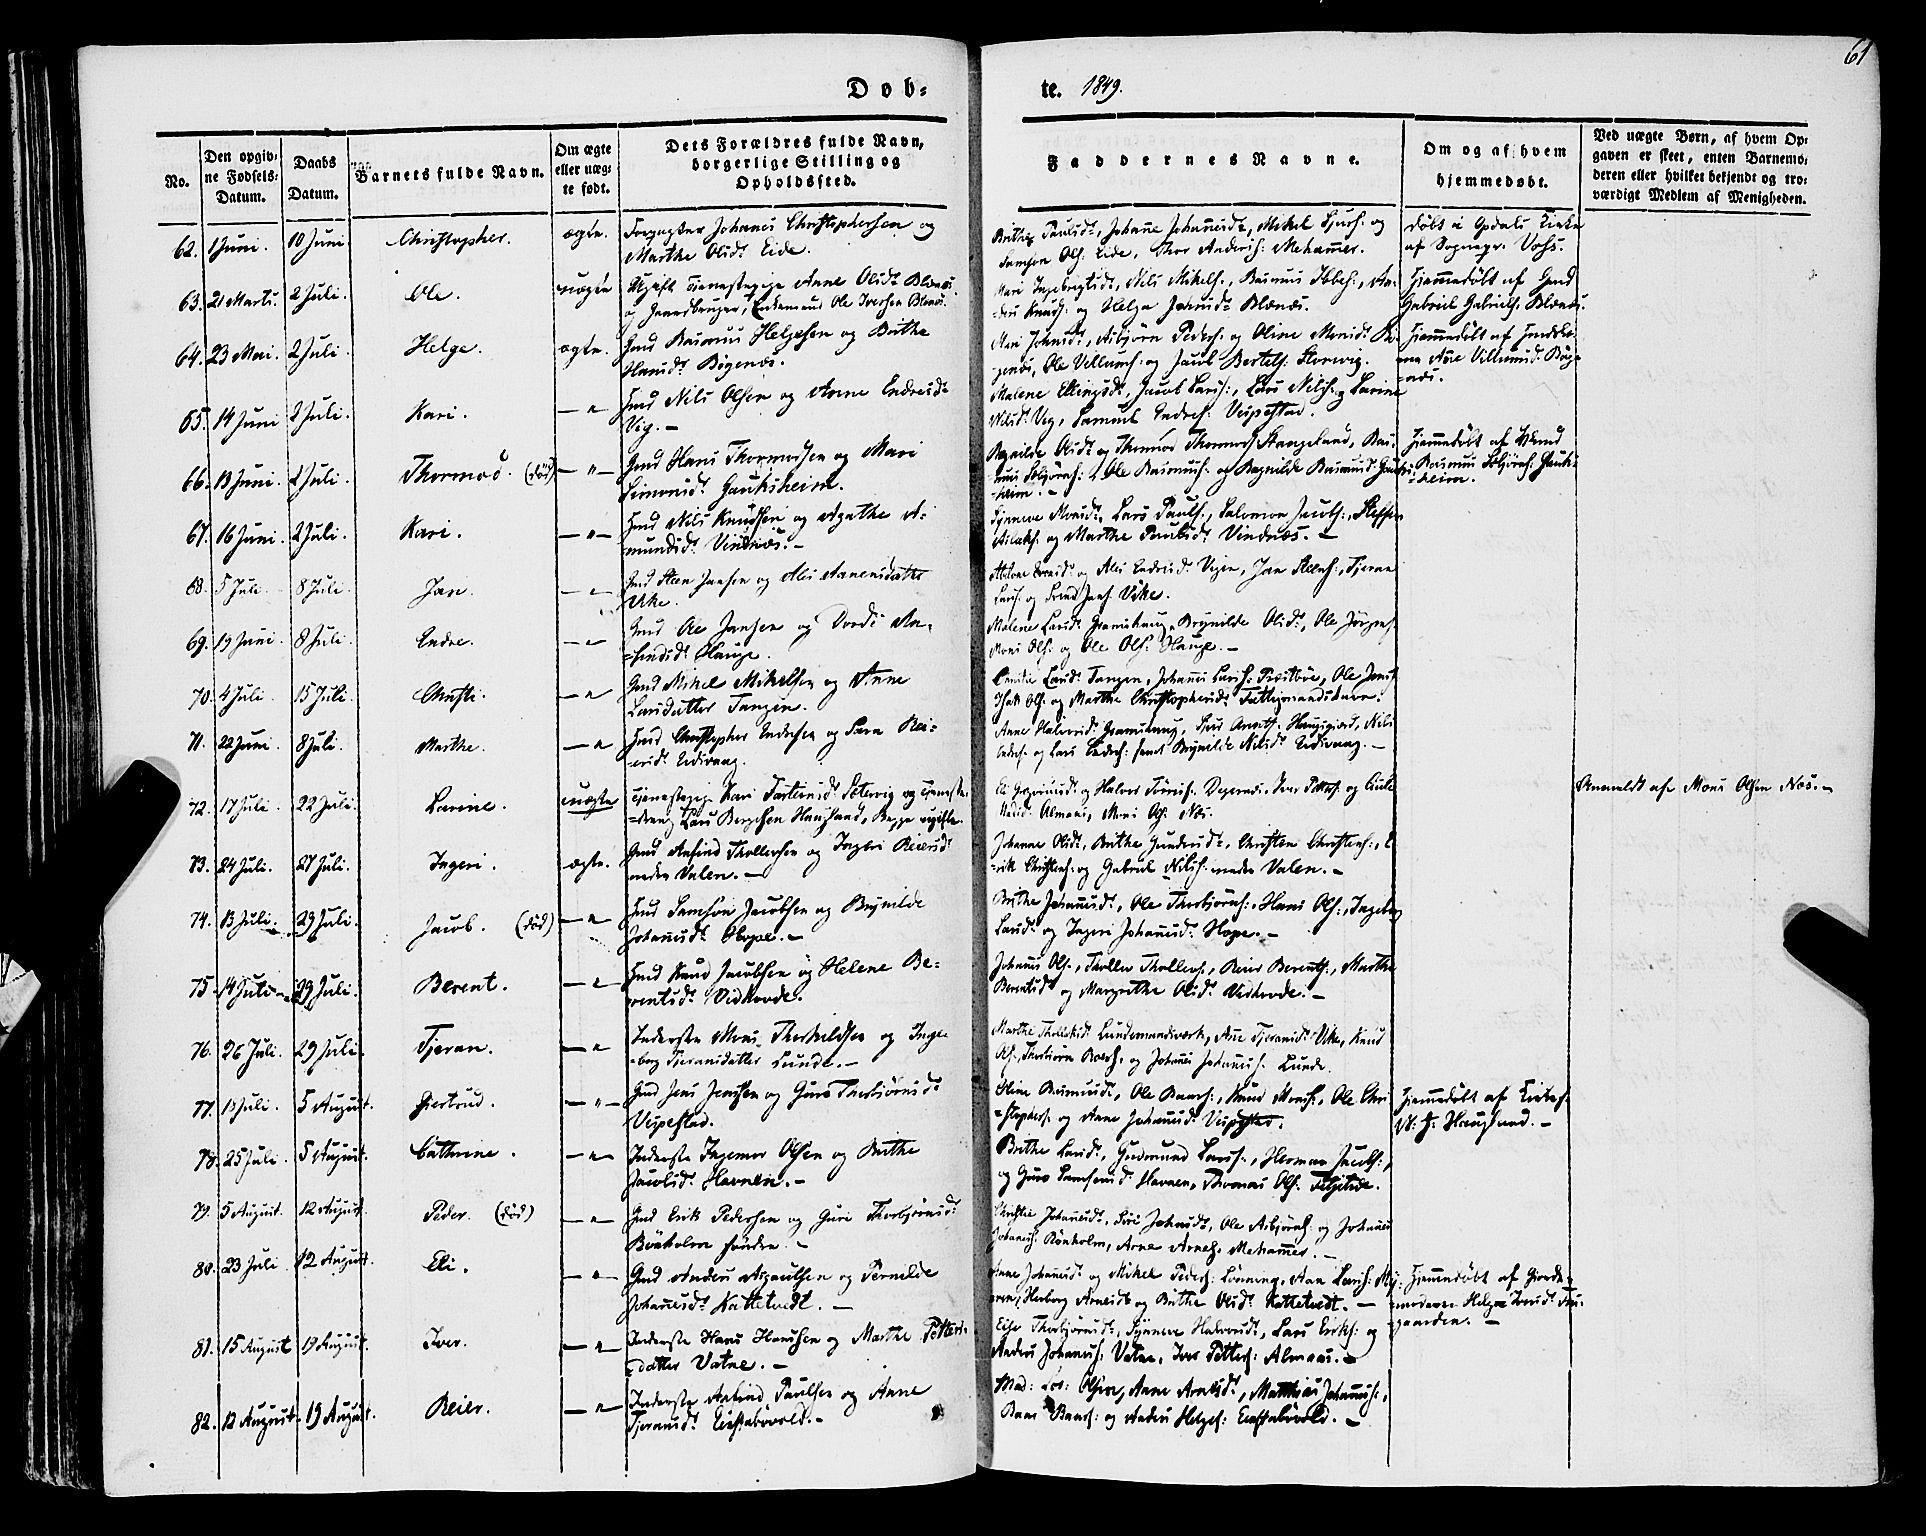 61
Døb-
te. 1849.
No.
Den opgiv-
ne Fødsels-
Datum.
Daabs
Datum.
Barnets fulde Navn.
Om ægte
eller uæg-
te født.
Dets Forældres fulde Navn,
borgerlige Stilling og
Opholdssted.
Faddernes Navne.
Om og af hvem
hjemmedøbt.
Ved uægte Børn, af hvem Op-
gaven er skeet, enten Barnemo-
deren eller hvilket bekjendt og tro-
værdigt Medlem af Menigheden.
62. 1 Juni. 10 Juni. Christopher. ægte. Johanes Christophersen og
Marthe Olsd: Eide.
Paulsd:, Johane Johanesd:, Mikel Sjurs: og
Samson Ols: Eide, Thor Anders: Mehamer.
døbt i Opdals Kirke
af Sognepr. Vohs.
63. 21 Marts. 2 Juli. Ole. uægte Ugift Tjenestepige Anne Olsd: Blænæs
og Gaardbruger, Enkemand Ole Iversen Blænæs.
Mari Ingebrigtsd:, Nils Mikels:, Rasmus Ibbes:, An-
ders Knuds: og Helga Johansd: Blænæs.
Hjemmedøbt af Gmd
Gabriel Gabriels: Blænæs.
64. 23 Mai. 2 Juli. Helge. ægte. Gmd Rasmus Helgesen og Brithe
Hansd: Bøgenæs.
Asbjørn Peders: og Oline Monsd: Bø-
genæs, Ole Villums: og Paul Bertels:
Hjemmedøbt af
Villumsd: Bøge-
næs.
65. 14 Juni 2 Juli. Kari. — " Gmd Nils Olsen og Anne Endresd:
Vig. —
Malene Ellingsd:, Jacob Lars:, Lars Nils: og Larine
Nilsd: Vig, Samuel Endres: Veipestad.
66. 13 Juni. 2 Juli. Thormod. (død) — " — Gmd Hans Thormodsen og Mari
Simonsd: Gauksheim.
Ragnilde Olsd: og Thormod Thormods: Stangeland, Ras-
mus Asbjørns:, Ole Rasmus: og Ragnilde Rasmusd: Gauks-
heim. —
Hjemmedøbt af
Rasmus Asbjørns: Gauks-
heim.
67. 16 Juni. 2 Juli. Kari. — " — Gmd Nils Knudsen og Agathe A-
mundsd: Vindnæs. —
Synneve Monsd:, Lars Pauls:, Salomon Jacobs:, Steffen
Aslaks: og Marthe Paulsd: Vindnæs. —
68. 5 Juli. 8 Juli. Jan. — " Gmd Steen Jansen og
Vike.
og Endresd: Vigen, Jan Steens:, Tjeran
Lars: og Jans: Vike.
69. 19 Juni. 8 Juli. Endre. — " Gmd Ole Jansen og Dordi An-
findsd: Hauge.
Malene Larsd: Gramshaug, Brynilde Olsd:, Ole Jørgens:
Mons Ols: og Ole Ols: Hauge. —
70. 4 Juli. 15 Juli. Christi. — " Gmd Mikel Mikelsen og Anne
Larsdatter Tangen.
Larsd: Tangen, Johanes Lars: Præstbøe, Ole Jans:
Isak Ols: og Marthe Christophersd: Fattigmandskaar.
71. 22 Juni. 8 Juli. Marthe. — " Gmd Christopher Endresen og Sara Rei-
ersd: Eidsvaag.
Anne Halvorsd: Gramshaug, Sjur Haugsgjerd, Nils
Endres: og Lars Endres: samt Brynilde Nilsd: Eidsvaag. —
72. 17 Juli. 22 Juli. Larine. uægte Tjenestepige Kari Torbensd: Sætervig og Tjeneste-
dreng Lars Bergesen Haugland, Begge ugifte.
og Halvor
Almaas, Mons Ols: Næs.
Anmeldt af Mons Olsen Næs. —
73. 24 Juli. 27 Juli. Ingeri. ægte. Gmd Anfind Thollevsen og Ingbri Reiersd:
nedre Valen. —
Johanne Olsd:, Brithe Gundersd:, Christen Christens:, E-
rik Christens: og Gabriel Nils: nedre Valen. —
74. 13 Juli. 29 Juli. Jacob. (død) — " Gmd Samson Jacobsen og Brynilde
Johanesd: Hope. —
Brithe Johanesd:, Ole Thorbjørns:, Hans Ols:, Ingeborg
Larsd: og Ingeri Johanesd: Hope. —
75. 14 Juli. 29 Juli. Berent. — " Gmd Knud Jacobsen og Helene Be-
rentsd: Vidskorde.
Johanes Ols:, Thollev Thollevs:, Reier Berents:, Marthe
Berentsd: og Margrethe Olsd: Vidskorde. —
76. 26 Juli. 29 Juli. Tjeran. — " Inderste Mons Thorkildsen og Inge-
borg Tjeransdatter Lunde. —
Marthe Lundemandsværk, Ane Tjeransd: Vike, Knud
Ols:, Thorbjørn Baars: og Johanes Johanes: Lunde.
77. 13 Juli. 5 August. Giertrud. — " — Gmd Jens Jensen og Guro Thorbjørnsd:
Veipestad.
Oline Rasmusd:, Ole Baars:, Knud Mons:, Ole Chri-
stophers: og Anne Johanesd: Veipestad.
Hjemmedøbt af Kirkes:
Haugland. —
78. 25 Juli. 5 August. Cathrine. — " — Inderste Ingemor Olsen og Brithe
Jacobsd: Havnen. —
Brithe Larsd:, Gudmund Lars:, Herman Jacobs:,
og Guro Samsonsd: Havnen, Thomas Ols: Fitjetide.
79. 5 August. 12 August. Peder. (død) — " Gmd Erik Pedersen og Guri Thorbjørnsd:
Rønholm søndre. —
Christie Johanesd:, Siri Johansd:, Ole Asbjørns: og Johanes
Johanes: Rønholm, Arne Arnes: Mehammer. —
80. 23 Juli. 12 August. Eli. — " — Gmd Anders Asgautsen og Pernilde
Johanesd: Kattetvedt. —
Anne Johanesd: og Mikel Peders: Lønning, Aan Lars:
Herborg Arnesd: og Brithe Olsd: Kattetvedt. —
Hjemmedøbt af Giorde-
moderen Helga Iversd:
gaarden. —
81. 15 August 19 August. Iver. — " — Inderste Hans Hansen og Marthe Petters-
datter Vatne. —
Thorbjørnsd:, Synneve Halvorsd:, Lars Eriks: og
Anders Johanes: Vatne, Iver Petters: Almaas. —
82. 12 August. 19 August. Reier. — " Inderste Anfind Paulsen og Anne
Tjeransd: Eidstabøvold. —
Mad: Anne Arnesd:, Matthias Johanes:,
Baar Baars: og Anders Helges: Eidstabøvold. —